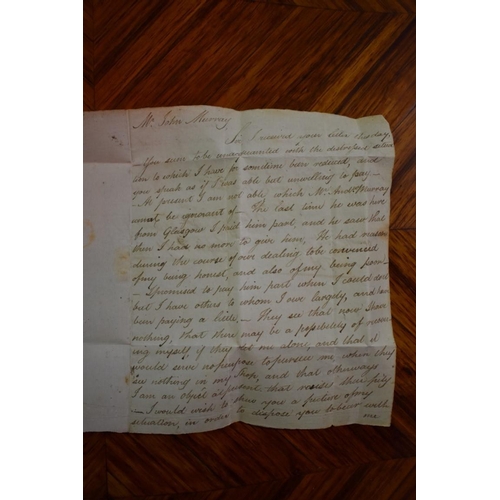 Mr. John Murray
Sir I received your letter thursday,
You seem to be unacquainted with the distressed situa
tion to which I have for sometime been reduced, and
you speak as if I was able but unwilling to pay —
At present I am not able, which Mr. Andw. Murray
cannot be ignorant of — The last time he was here
from Glasgow I paid him part, and he saw that
then I had no more to give him, He had reason
during the course of our dealing to be convinced
of my being honest, and also of my being poor —
I promised to pay him part when I could do it
but I have others to whom I owe largely, and have
been paying a little — They see that now I have
nothing, that there may be a possibility of recover
ing myself if they let me alone, and that it
would serve no purpose to pursue me, when they
see nothing in my Shop, and that otherways
I am an object at present that rouses their pity
— I would wish to draw you a picture of my
situation, in order to dispose you to bear with
me